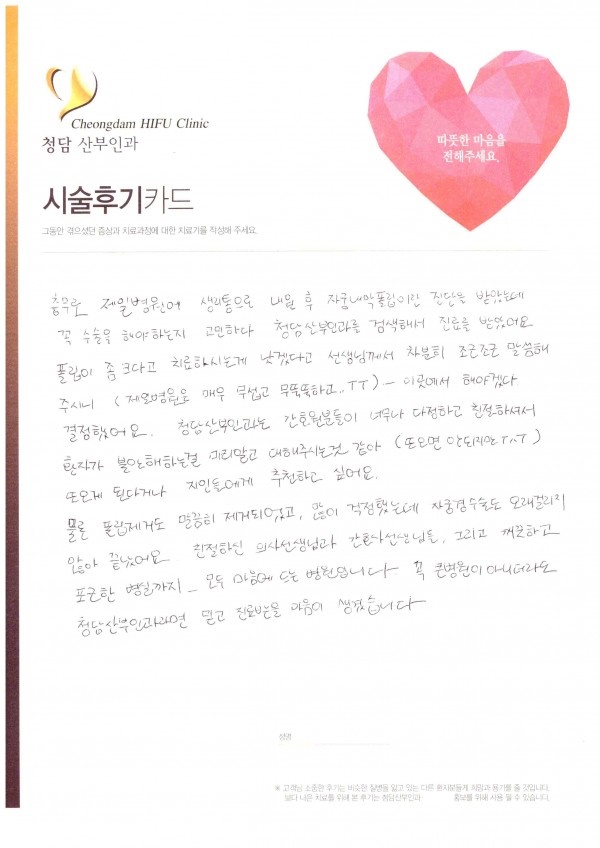 Cheongdam HIFU Clinic
청담 산부인과
따뜻한 마음을
전해주세요.
시술후기카드
그동안 겪으셨던 증상과 치료과정에 대한 치료기를 작성해 주세요.
충무로 제일병원에 생리통으로 내원 후 자궁내막폴립이란 진단을 받았는데
꼭 수술을 해야하는지 고민하다 청담산부인과를 검색해서 진료를 받았어요
폴립이 좀 크다고 치료하시는게 낫겠다고 선생님께서 차분히 조근조근 말씀해
주시니 (제일병원은 매우 무섭고 무뚝뚝하고.. TT) - 이곳에서 해야겠다
결정했어요. 청담산부인과는 간호원분들이 너무나 다정하고 친절하셔서
환자가 불안해하는걸 미리알고 대해주시는것 같아 (또오면 안되지만 T^T)
또오게 된다거나 지인들에게 추천하고 싶어요.
물론 폴립제거도 말끔히 제거되었고, 많이 걱정했는데 자궁경수술도 오래걸리지
않아 끝났어요. 친절하신 의사선생님과 간호사선생님들, 그리고 깨끗하고
포근한 병실까지 - 모두 마음에 드는 병원입니다 꼭 큰병원이 아니더라도
청담산부인과라면 믿고 진료받을 마음이 생겼습니다
성명
※ 고객님 소중한 후기는 비슷한 질병을 앓고 있는 다른 환자분들게 희망과 용기를 줄 것입니다.
보다 나은 치료를 위해 본 후기는 청담산부인과 홍보를 위해 사용 될 수 있습니다.